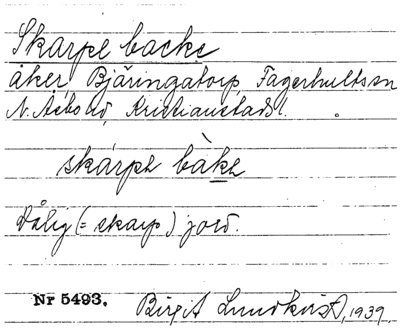 Skarpe backe
åker, Bjäringatorp, Fagerhultssn
N. Åsbo hd, Kristianstads l.
skárpə bàkə
Dålig (= skarp) jord.
Nr 5493. Birgit Lundkvist, 1939.